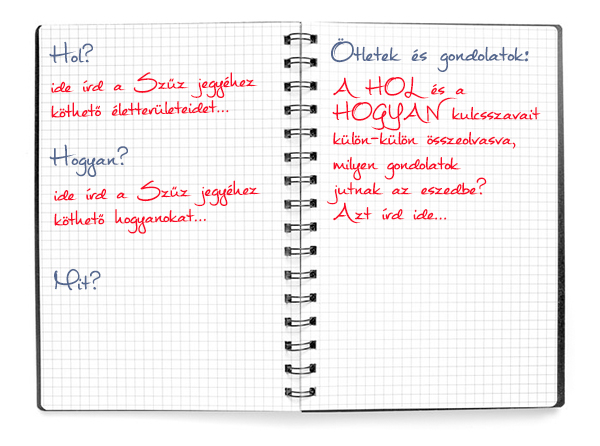 Hol?
ide írd a Szűz jegyéhez
köthető életterületeidet...
Hogyan?
ide írd a Szűz jegyéhez
köthető hogyanokat...
Mit?
Ötletek és gondolatok:
A HOL és a
HOGYAN kulcsszavait
külön-külön összeolvasva,
milyen gondolatok
jutnak az eszedbe?
Azt írd ide...